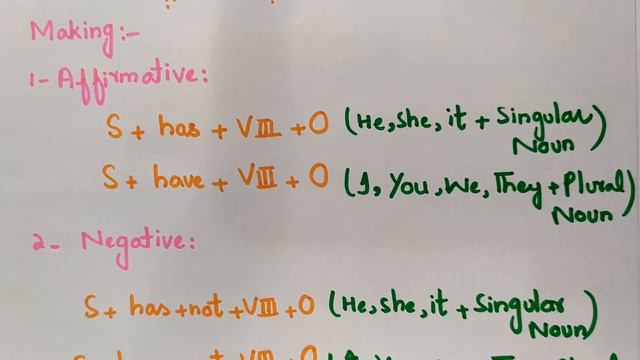 Making:-
1- Affirmative:
S + has + VIII + O (He, she, it + Singular Noun)
S + have + VIII + O (I, You, We, They + Plural Noun)
2- Negative:
S + has + not + VIII + O (He, she, it + Singular Noun)